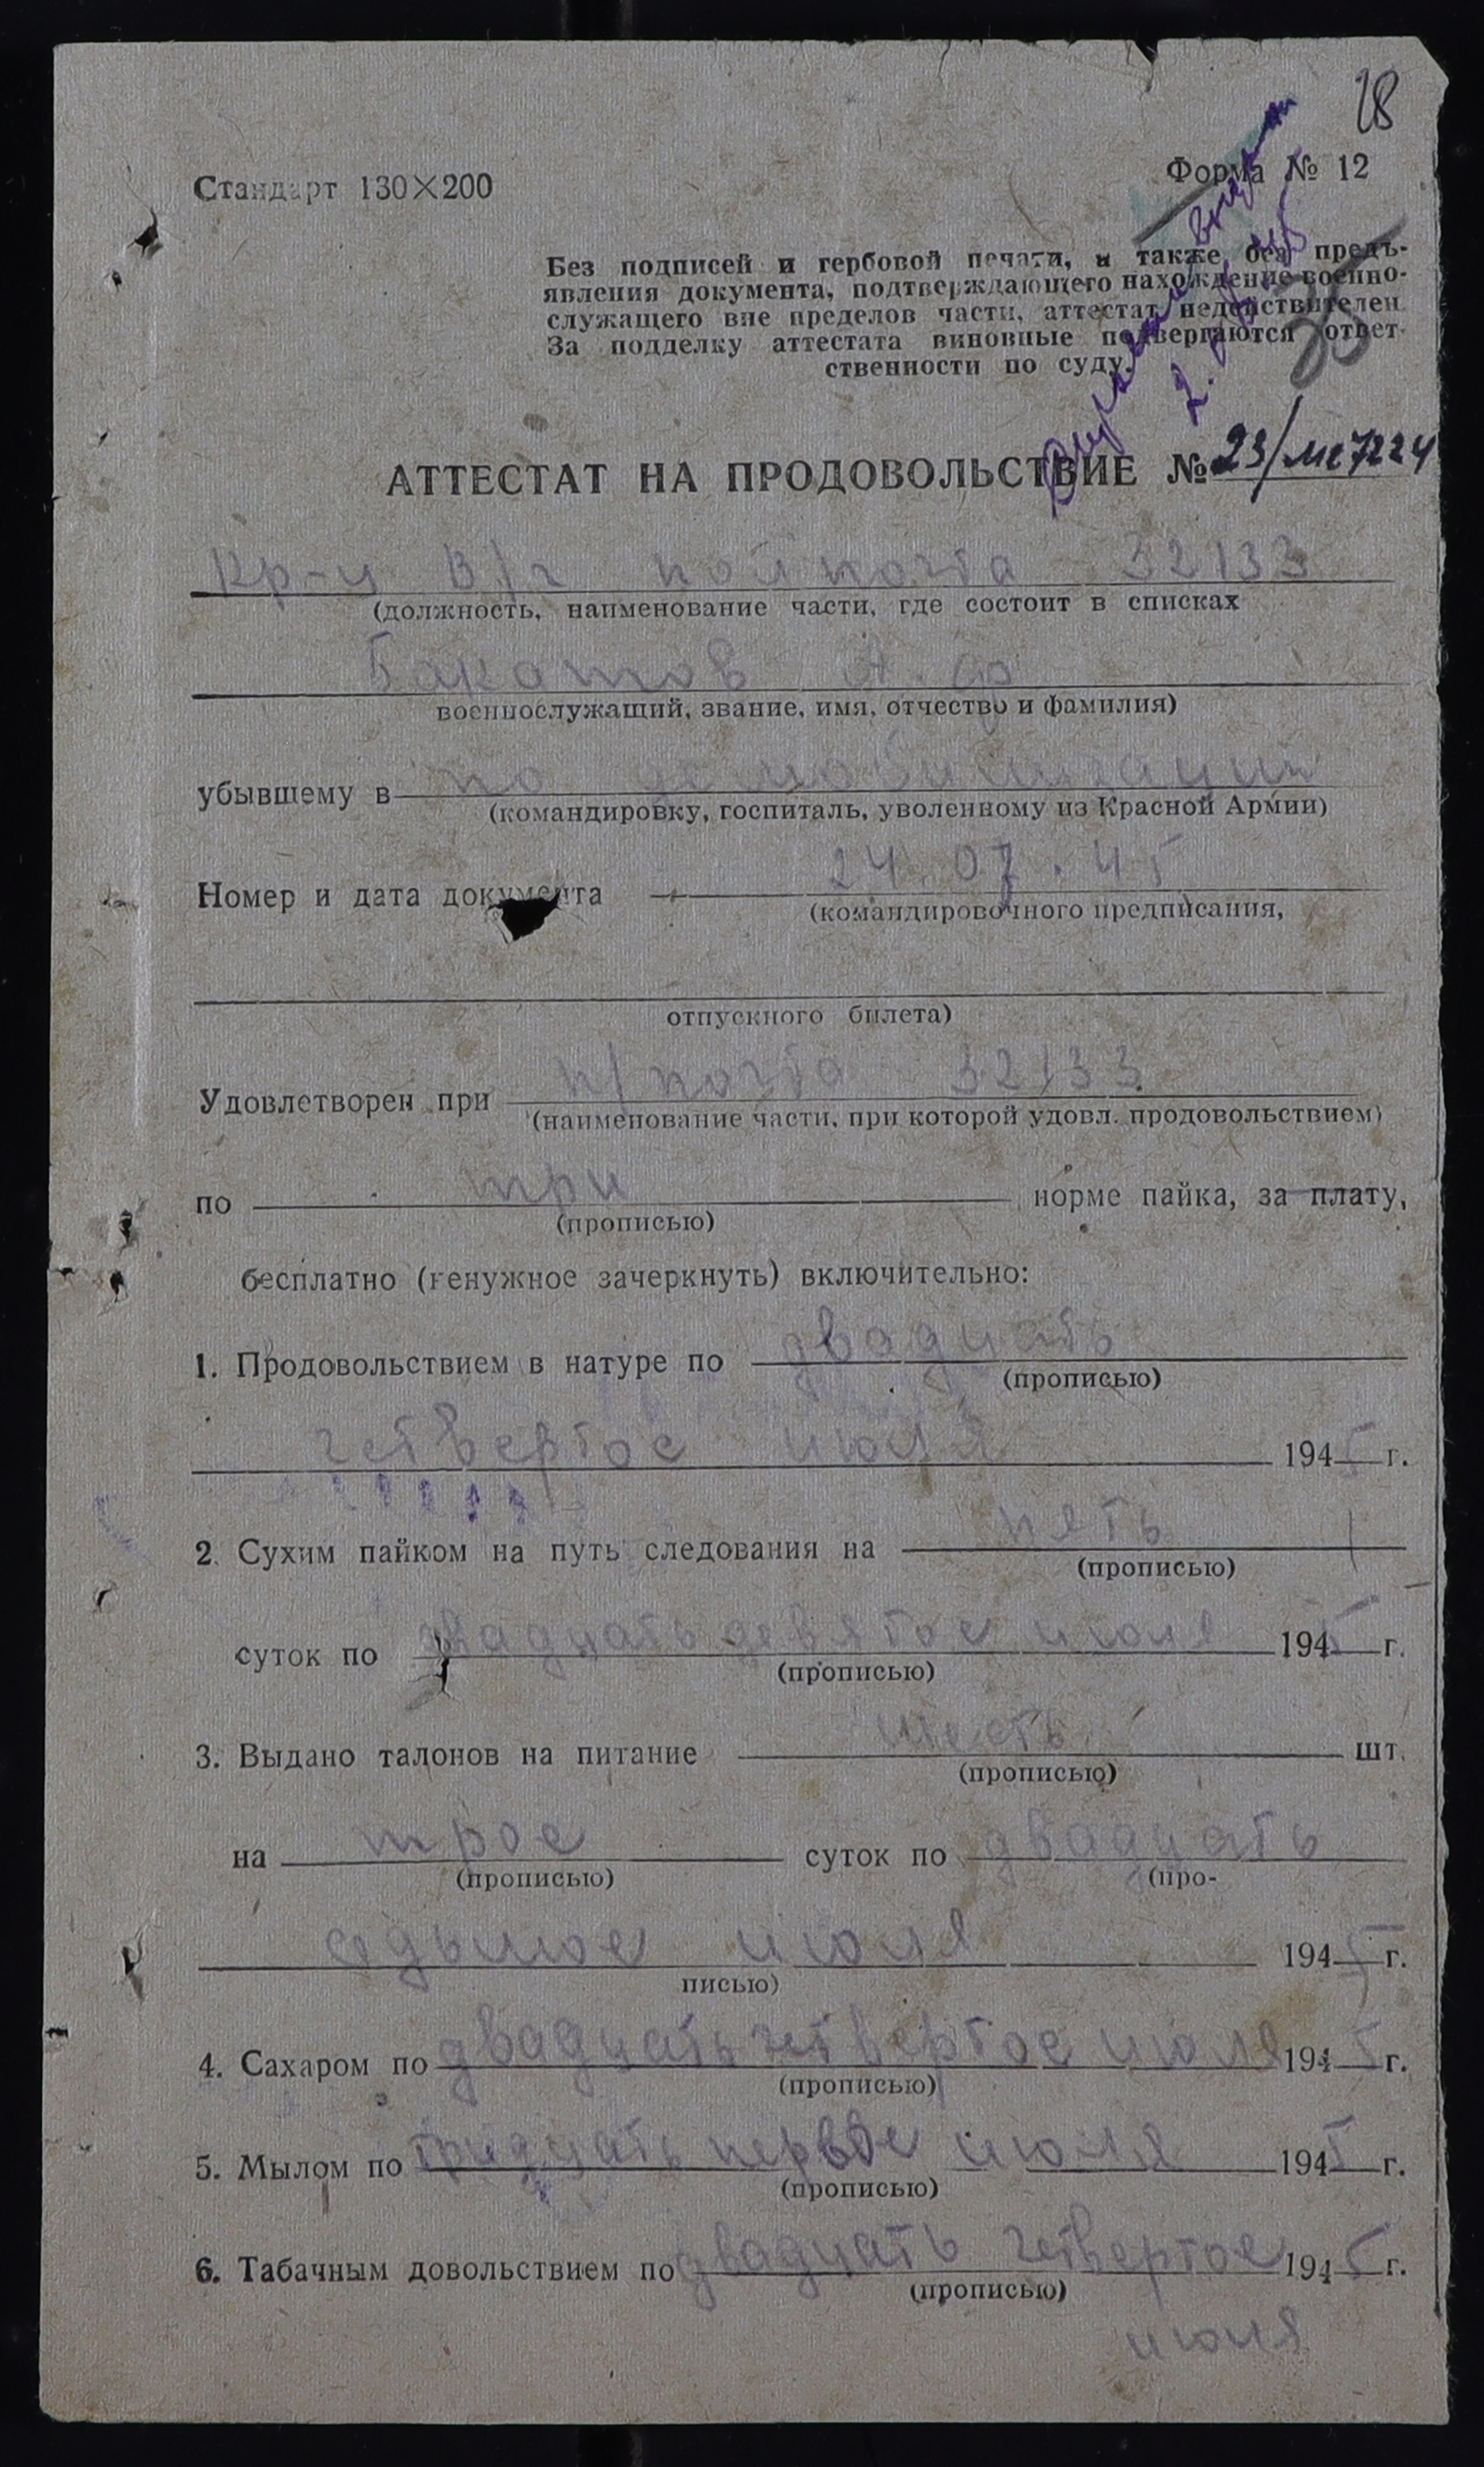 28
Стандарт 130×200
Форма № 12
Без подписей и гербовой печати, а также без предъ-
явления документа, подтверждающего нахождение военно-
служащего вне пределов части, аттестат недействителен
За подделку аттестата виновные подвергаются ответ-
ственности по суду.
АТТЕСТАТ НА ПРОДОВОЛЬСТВИЕ № 23/
Кр-ц В/ч полпочта 32133
(должность, наименование части, где состоит в списках
Бакотов А. Ф
военнослужащий, звание, имя, отчество и фамилия)
убывшему в по демобилизации
(командировку, госпиталь, уволенному из Красной Армии)
Номер и дата документа 24.07.45
(командировочного предписания,
отпускного билета)
Удовлетворен при п/почта 32133
(наименование части, при которой удовл. продовольствием)
по три норме пайка, за плату,
(прописью)
бесплатно (ненужное зачеркнуть) включительно:
1. Продовольствием в натуре по двадцать
(прописью)
четвертое июля 1945 г.
2 Сухим пайком на путь следования на пять
(прописью)
суток по двадцать девятое июля 1945 г.
(прописью)
3. Выдано талонов на питание шесть шт.
(прописью)
на трое суток по двадцать
(прописью) (про-
седьмое июля 1945 г.
писью)
4. Сахаром по двадцать четвертое июля 1945 г.
(прописью)
5. Мылом по тридцать первое июля 1945 г.
(прописью)
6. Табачным довольствием по двадцать четвертое 1945 г.
(прописью)
июля